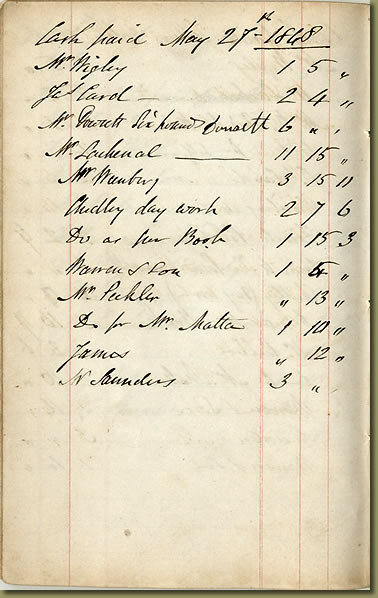 Cash paid May 27th 1848
Mr Wigley 1 5 "
Jas Card — 2 4 "
Mr Dowsett Six pound Dowsett 6 " "
Mr Lachenal — 11 15 "
Mr 3 15 11
Chidley day work 2 7 6
Do as per Book 1 15 3
Warren & Son 1 5 "
Mr Pickler " 13 "
Do for Mr 1 10 "
James " 12 "
N Saunders 3 " "